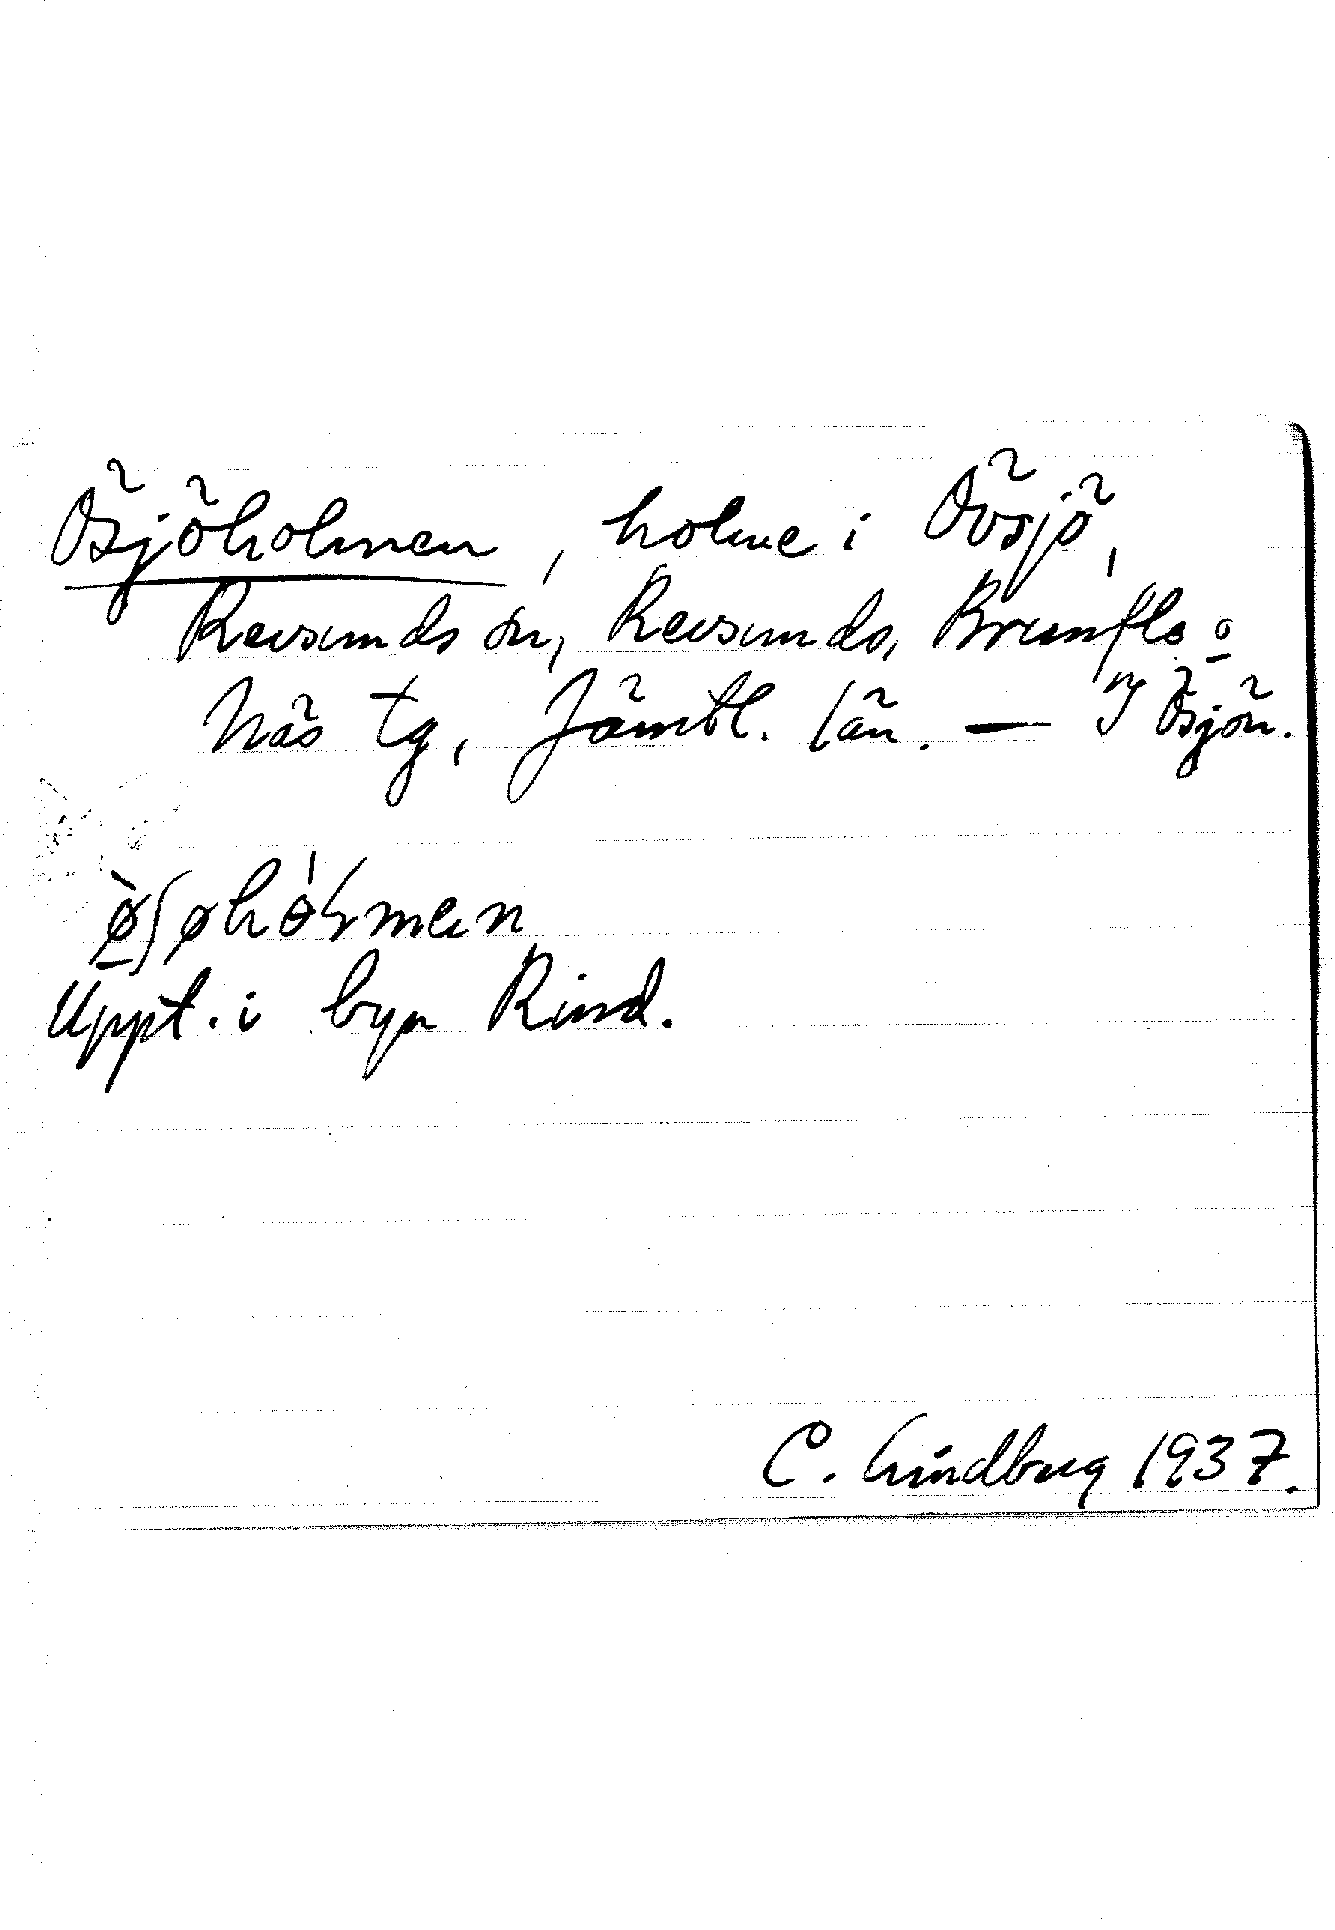 Ösjöholmen, holme i Övsjö,
Revsunds sn, Revsunds, Brunflo o
Näs tg, Jämtl. län. — I Ösjön.
Uppt. i byn Rind.
C. Lindberg 1937.